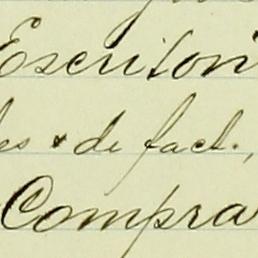 Escriton
les & de fact.,
Compra